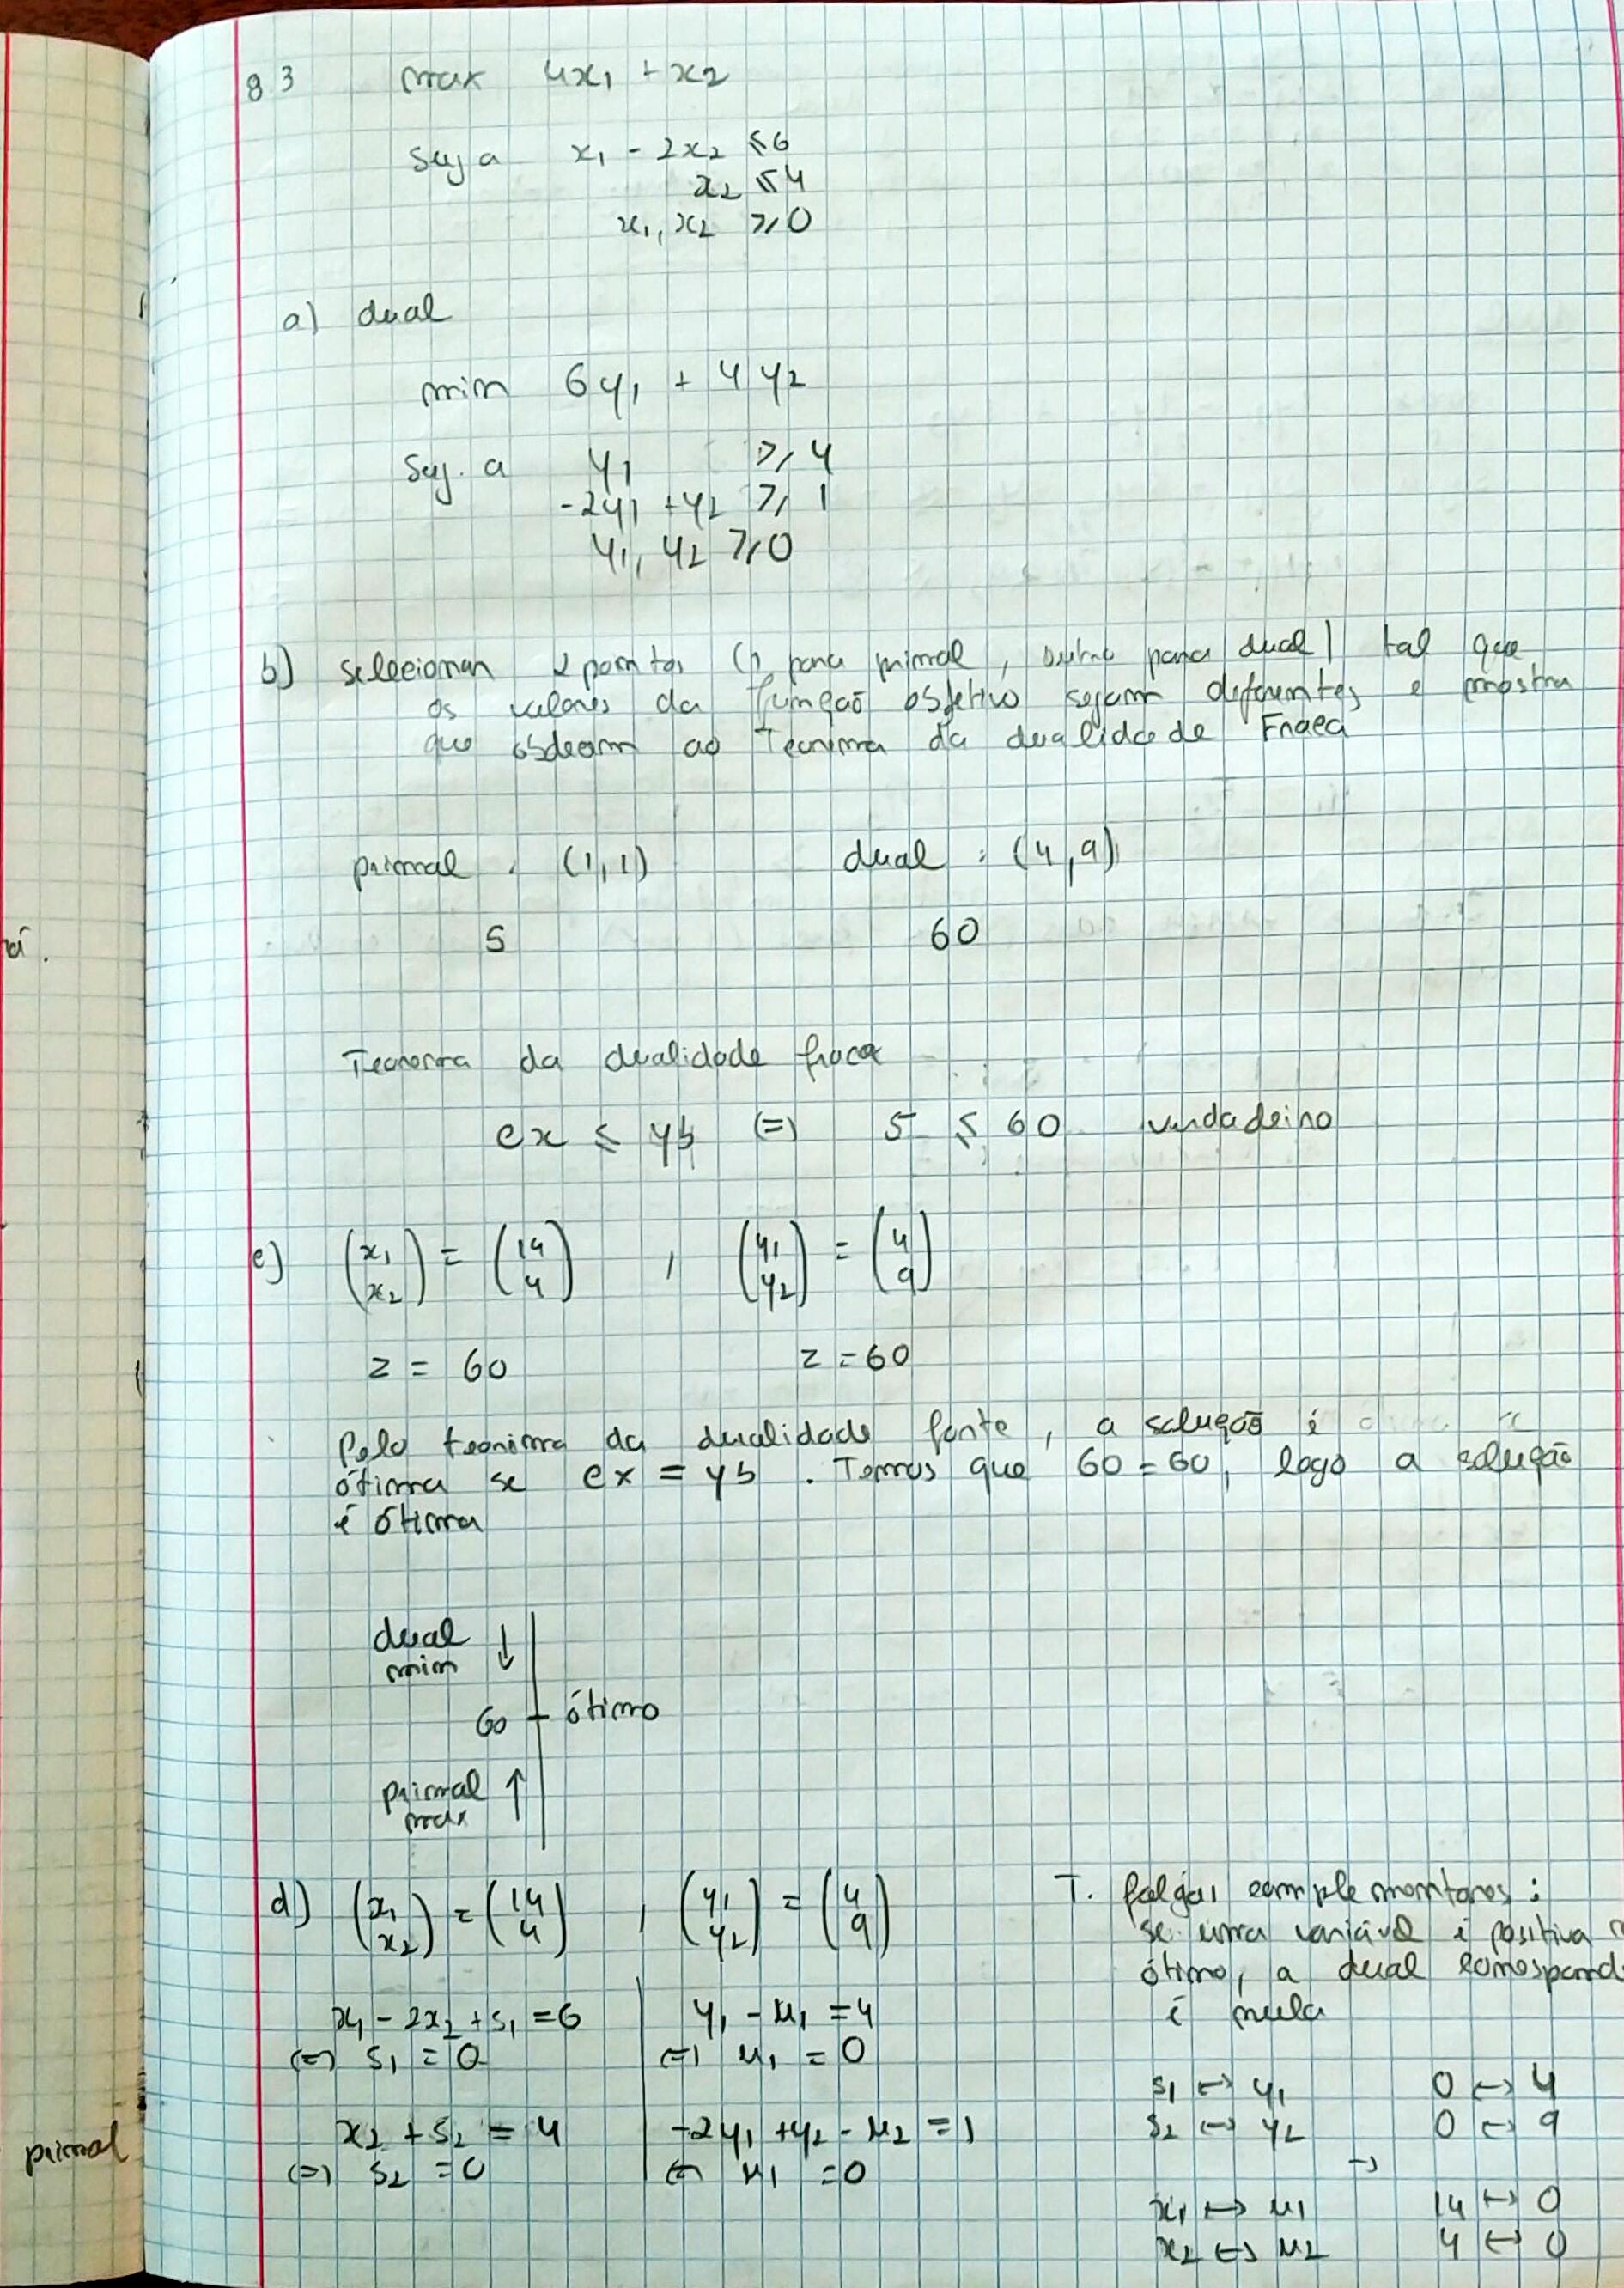 83 max 4x₁ + x₂
suj a x₁ - 2x₂ ≤ 6
x₂ ≤ 4
x₁, x₂ ≥ 0
a) dual
min 6y₁ + 4y₂
suj. a y₁ ≥ 4
-2y₁ + y₂ ≥ 1
y₁, y₂ ≥ 0
b) selecionar 2 pontos (1 para primal, outro para dual) tal que
os valores da função objetivo sejam diferentes e mostra
que obdeam ao Teorema da dualidade Fraca
primal : (1,1) dual : (4,9)
5 60
Teorema da dualidade fraca
cx ≤ yb (=) 5 ≤ 60 verdadeiro
c) (x₁ x₂) = (14 4) , (y₁ y₂) = (4 9)
z = 60 z = 60
Pelo teorema da dualidade forte, a solução é
ótima se cx = yb . Temos que 60 = 60, logo a solução
é ótima
dual ↓
min
60 ótimo
primal ↑
max
d) (x₁ x₂) = (14 4) , (y₁ y₂) = (4 9)
x₁ - 2x₂ + s₁ = 6 y₁ - u₁ = 4
(=) s₁ = 0 (=) u₁ = 0
x₂ + s₂ = 4 -2y₁ + y₂ - u₂ = 1
(=) s₂ = 0 (=) u₁ = 0
T. folgas complementares :
se uma variável é positiva
ótimo, a dual correspond
é nula
s₁ ↔ y₁ 0 ↔ 4
s₂ ↔ y₂ 0 ↔ 9
→
x₁ ↔ u₁ 14 ↔ 0
x₂ ↔ u₂ 4 ↔ 0
á.
primal